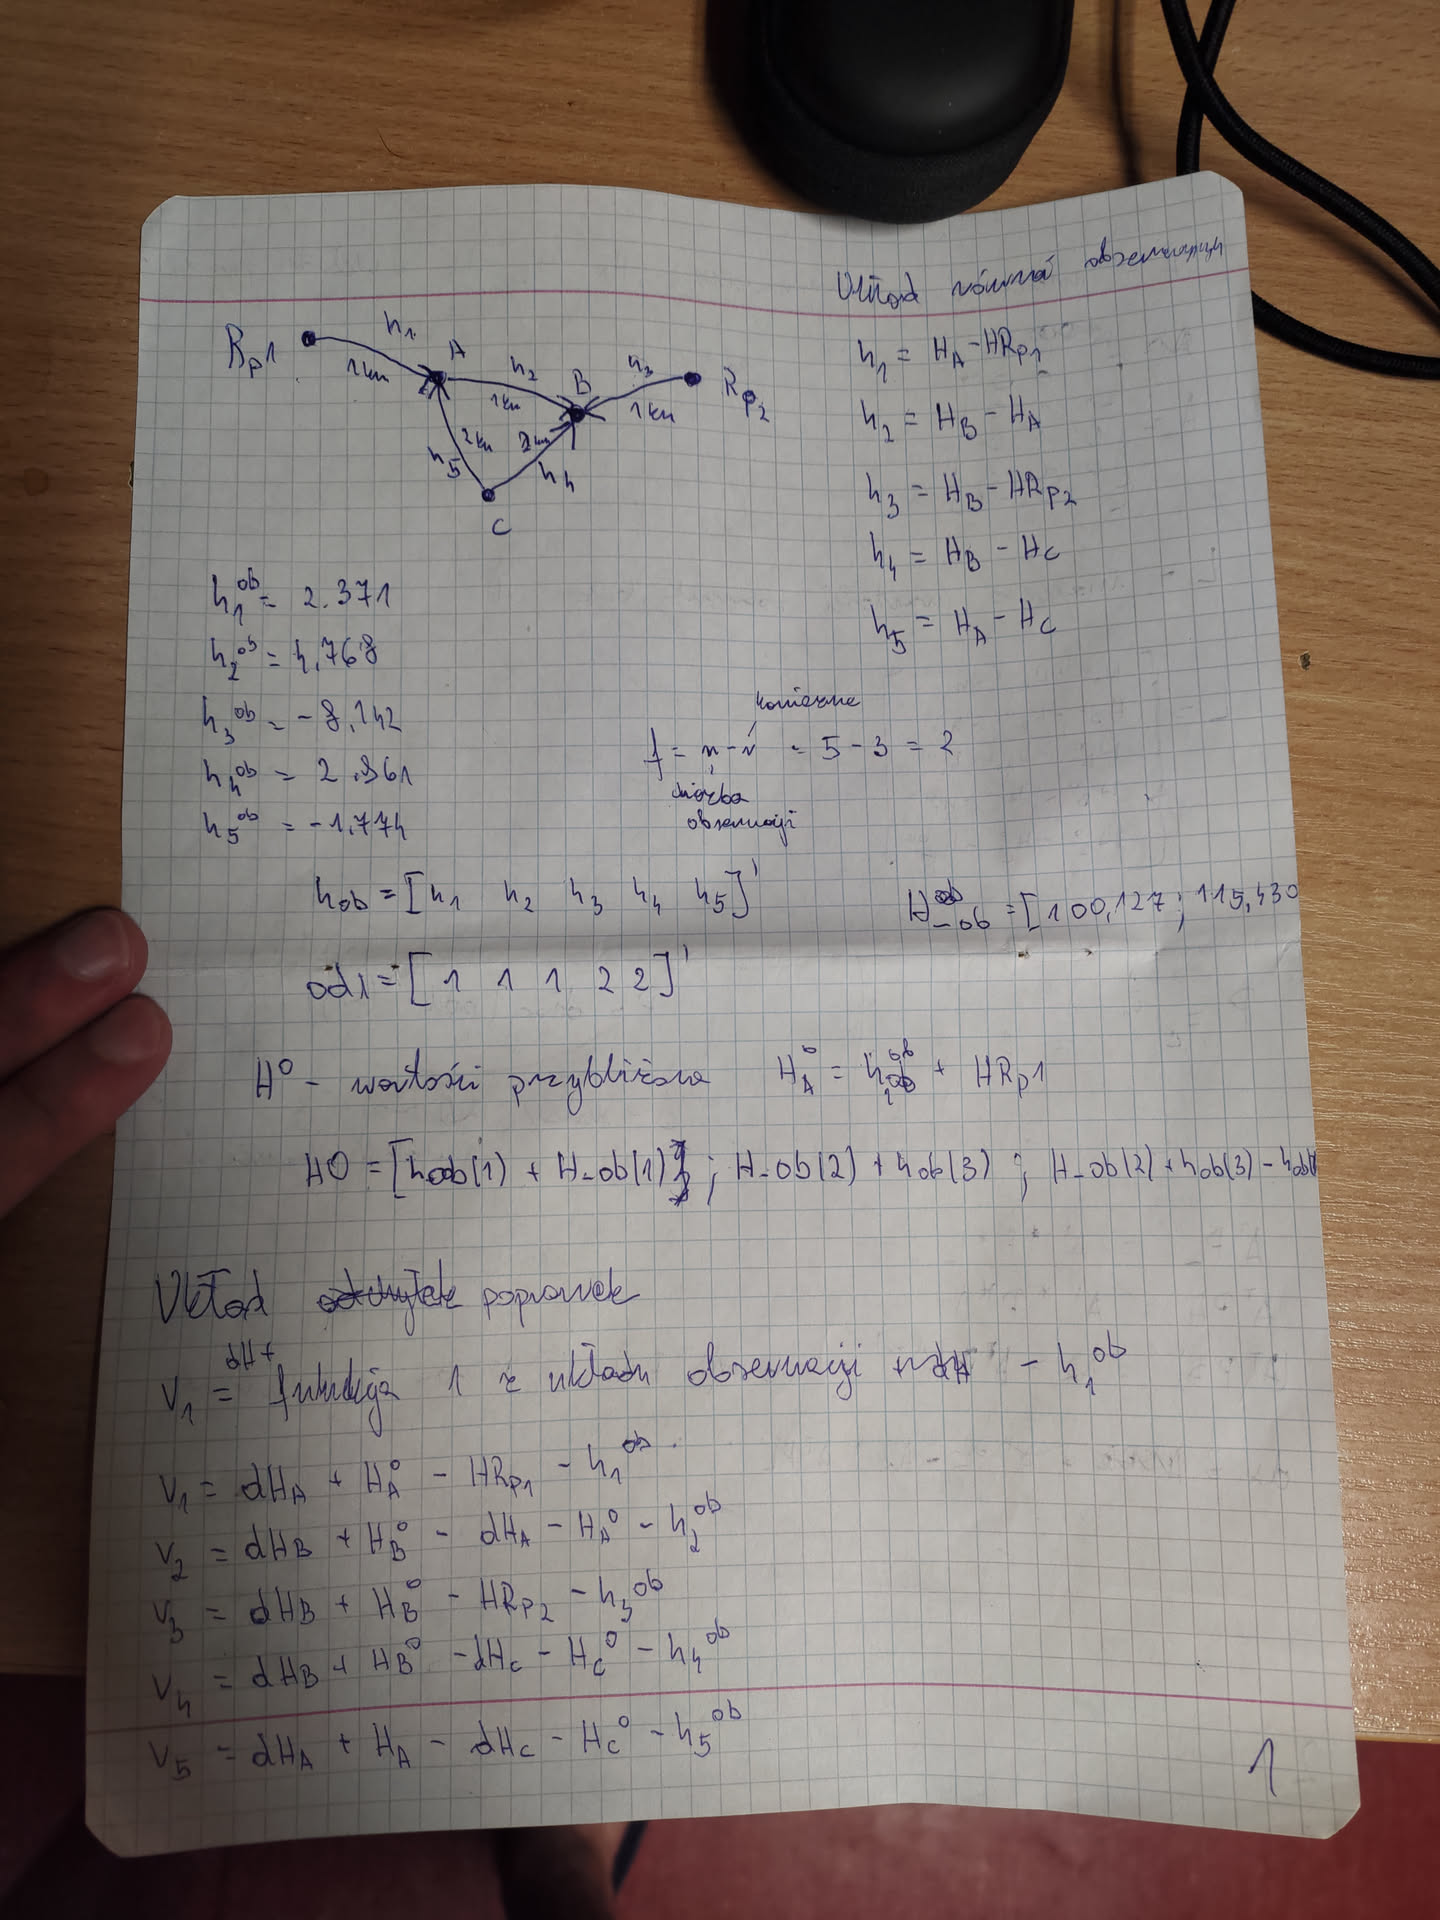 Układ równań obserwacyjnych
Rp1 h1 1km A h2 1km B h3 1km Rp2
2km h5 2km h4
C
h1 = HA - HRp1
h2 = HB - HA
h3 = HB - HRp2
h4 = HB - HC
h5 = HA - HC
h1^ob = 2.371
h2^ob = 4,768
h3^ob = - 8,142
h4^ob = 2.961
h5^ob = -1.774
konieczne
f = n - n = 5 - 3 = 2
liczba
obserwacji
hob = [h1 h2 h3 h4 h5]'
H_ob = [100,127 ; 115,430
odl = [1 1 1 2 2]'
H° - wartości przybliżone HA° = h1^ob + HRp1
H0 = [hob(1) + H_ob(1) ; H_ob(2) + hob(3) ; H_ob(2) + hob(3) - hob(
Układ poprawek
V1 = dH + funkcja 1 z układu obserwacji - h1^ob
V1 = dHA + HA° - HRp1 - h1^ob
V2 = dHB + HB° - dHA - HA° - h2^ob
V3 = dHB + HB° - HRp2 - h3^ob
V4 = dHB + HB° - dHC - HC° - h4^ob
V5 = dHA + HA - dHC - HC° - h5^ob
1